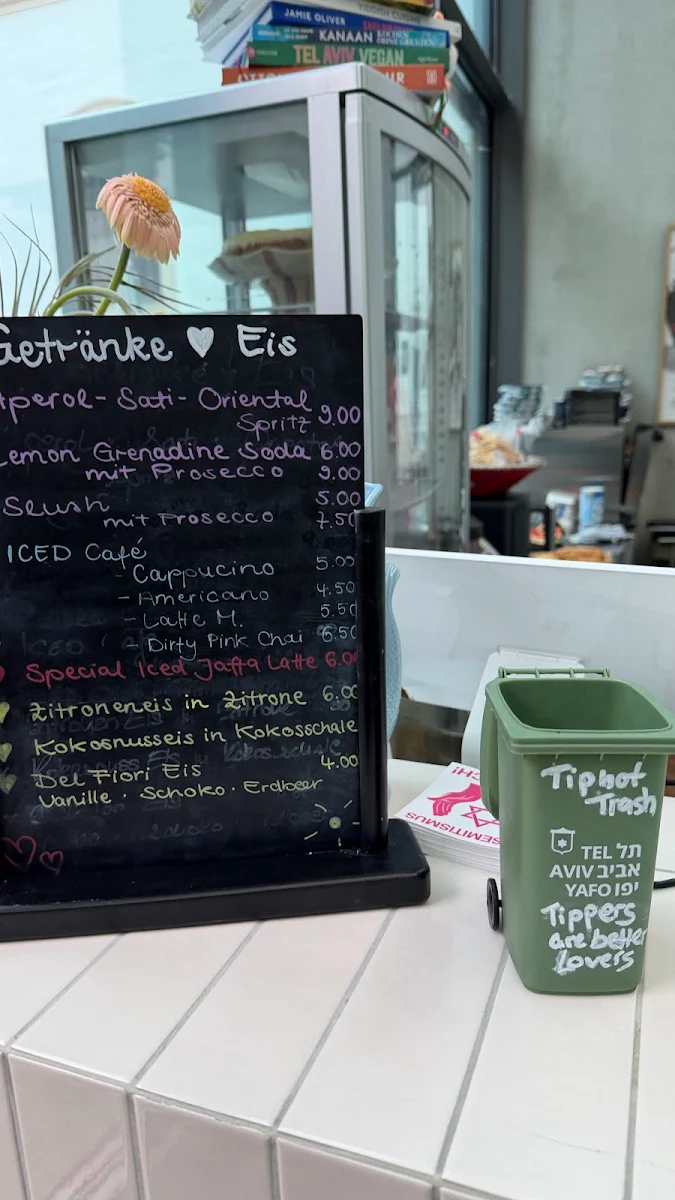 JAMIE OLIVER
KANAAN KOCHEN OHNE GRENZEN
TEL AVIV VEGAN
Getränke ♥ Eis
Aperol-Sati-Oriental
Spritz 9.00
Lemon Grenadine Soda 6.00
mit Prosecco 9.00
Slush 5.00
mit Prosecco 7.50
ICED Café
- Cappucino 5.00
- Americano 4.50
- Latte M. 5.50
- Dirty Pink Chai 6.50
Special Iced Jaffa Latte 6.00
Zitroneneis in Zitrone 6.00
Kokosnusseis in Kokosschale
Del Fiori Eis 4.00
Vanille · Schoko · Erdbeer
SEMITISMUS
Tip not
Trash
TEL תל
AVIV אביב
YAFO יפו
Tippers
are better
Lovers